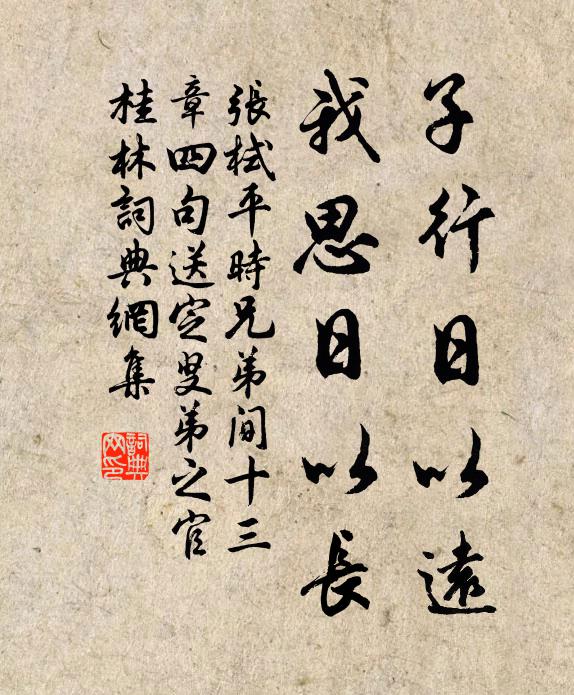 子行日以遠
我思日以長
張栻平時兄弟間十三
章四句送定叟弟之官
桂林詞典網集
詞典
网印